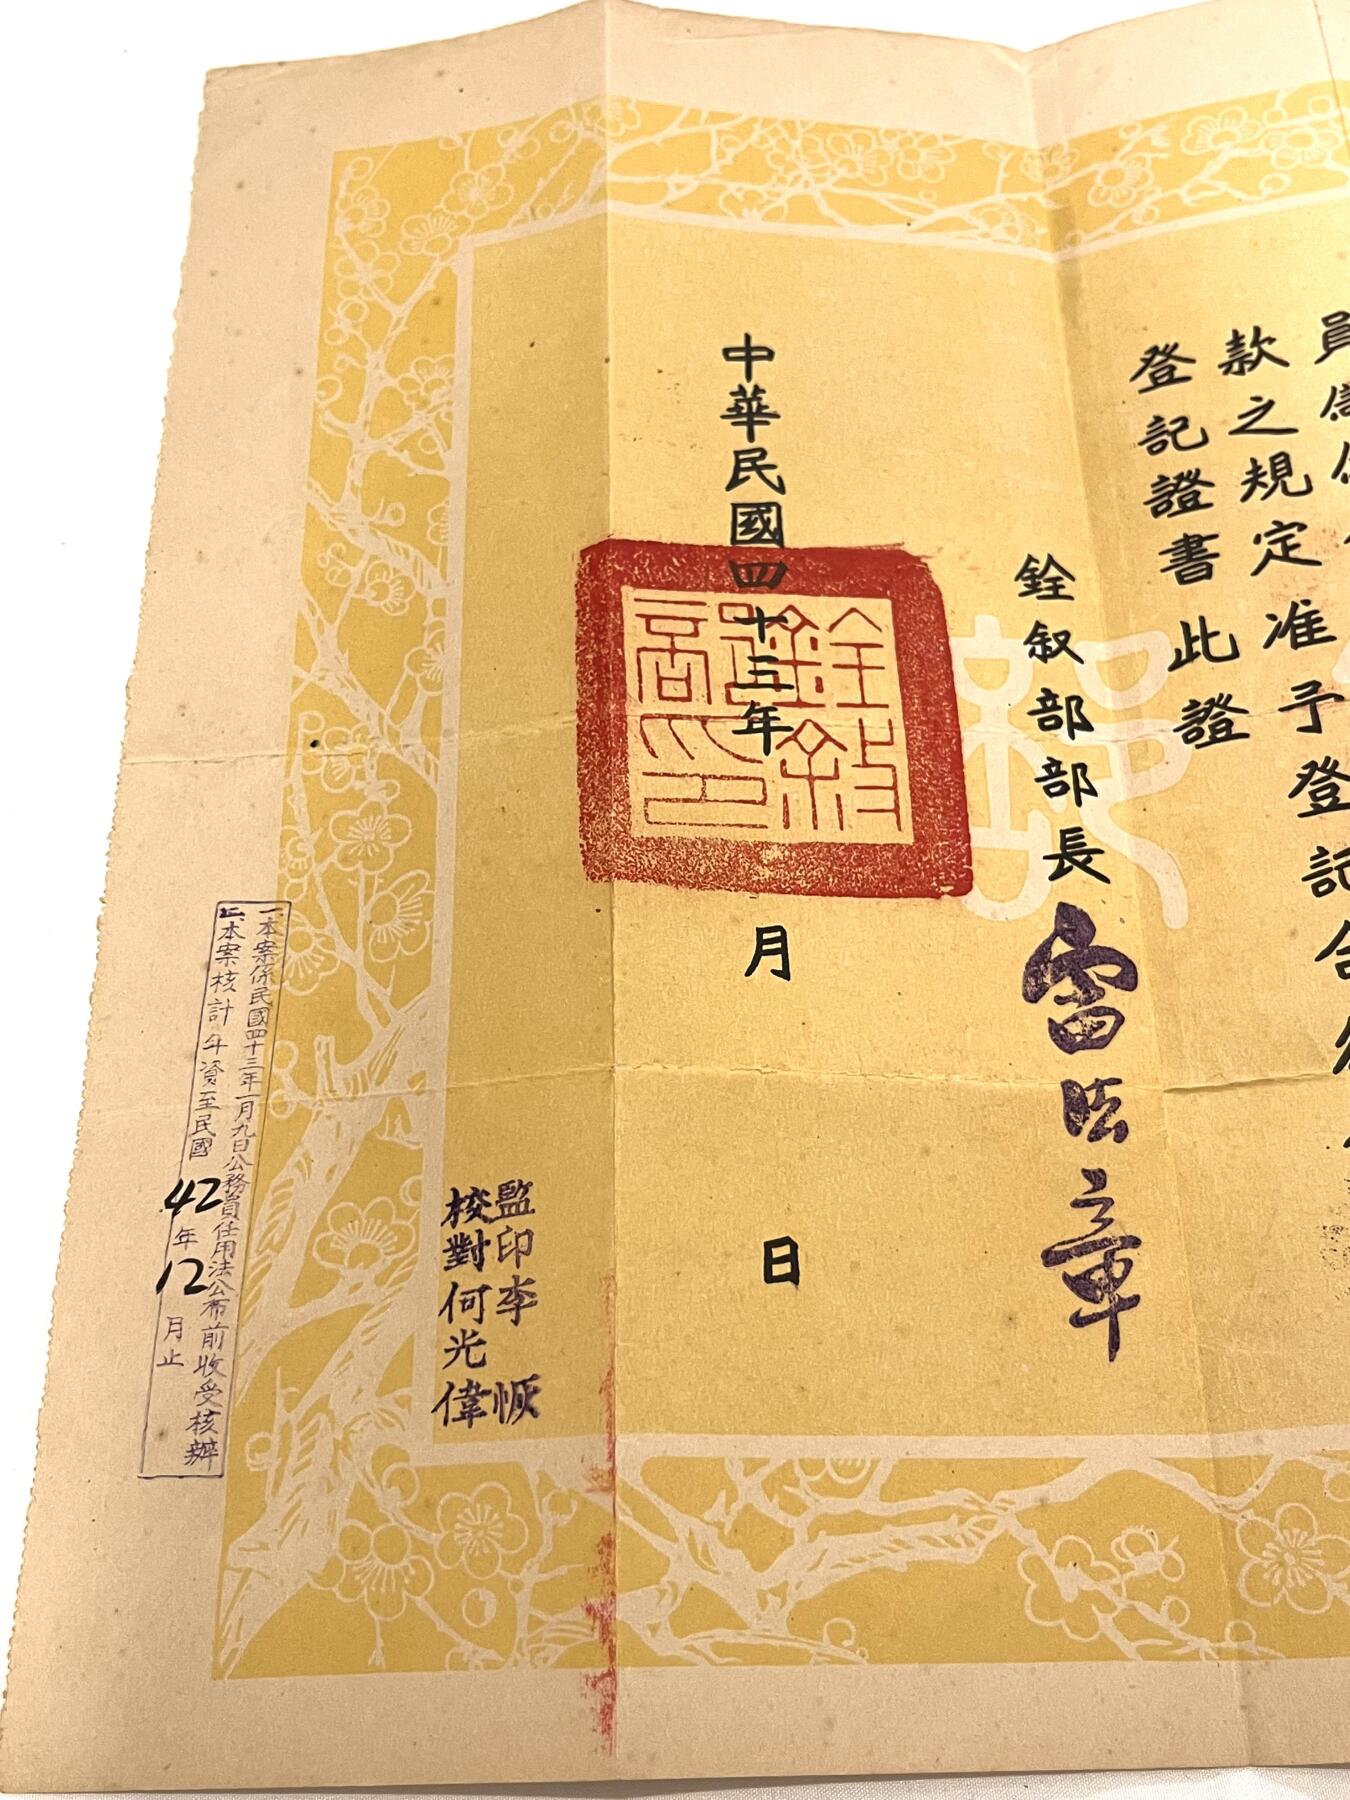 款之規定准予登記合
登記證書此證
銓叙部部長 雷法章
中華民國四十三年 月 日
銓敘部印
監印李恢
校對何光偉
一、本案係民國四十三年一月九日公務員任用法公布前收受核辦
二、本案核計年資至民國42年12月止